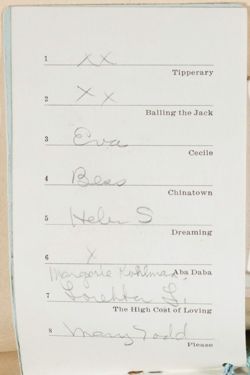 1 XX
Tipperary
2 XX
Balling the Jack
3 Eva
Cecile
4 Bess
Chinatown
5 Helen S
Dreaming
6 X
Margorie
Aba Daba
7 Loretta L.
The High Cost of Loving
8 Mary Todd
Please